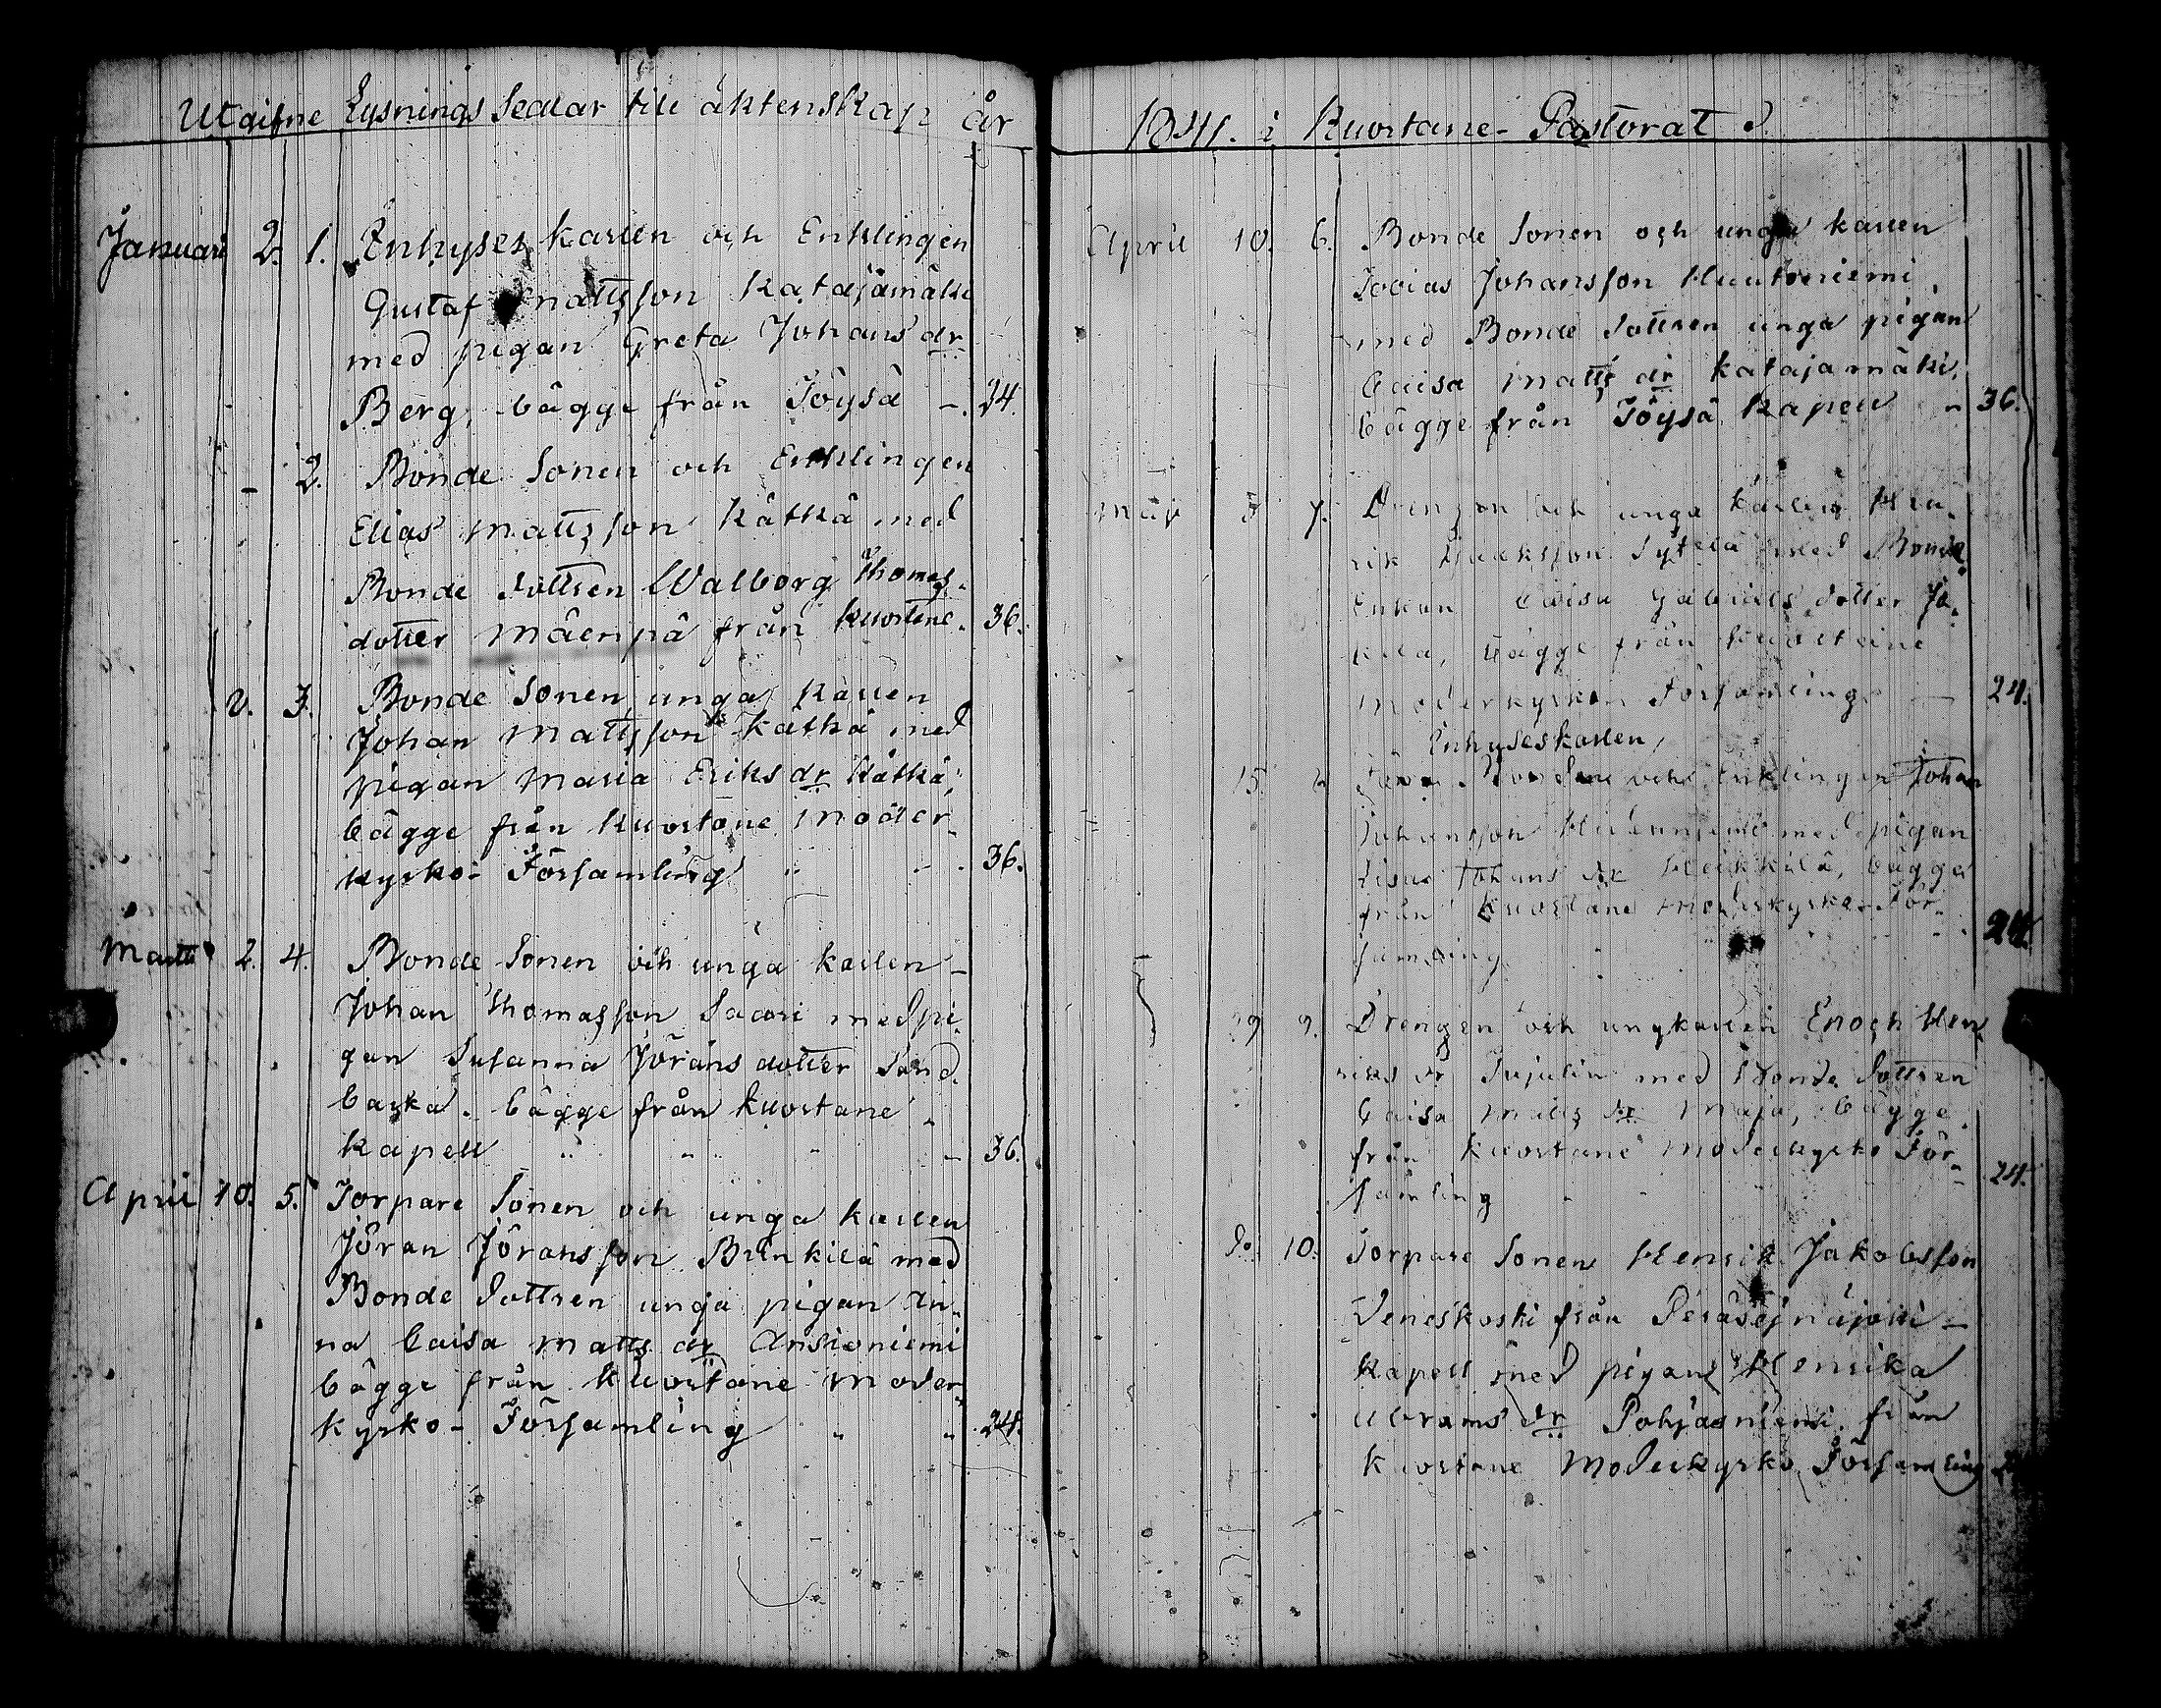 Utgifne Lysnings Sedlar till äktenskap år
Januari 2. 1. Enhyses karlen och Enklingen
Gustaf Mattsson Katajamäki
med pigan Greta Johans dr
Berg, bägge från Töysä -. 24.
- 2. Bonde Sonen och Enklingen
Elias Mattsson Kätkä med
Bonde Dottren Walborg Thomas
dotter Mäenpä från Kuortane. 36.
2. 3. Bonde Sonen unga karlen
Johan Mattsson Kätkä med
pigan Maria Eriks dr Kätkä,
bägge från Kuortane moder
kyrko- Församling 36.
Martii 2. 4. Bonde Sonen och unga karlen
Johan Thomasson Saari med pi
gan Susanna Jörans dotter Sand
backa. bägge från Kuortane
Kapell 36.
April 10. 5. Torpare Sonen och unga karlen
Jöran Jöransson Brinkilä med
Bonde Dottren unga pigan An
na Caisa Matts dr Ansioniemi
bägge från Kuortane moder
kyrko- Församling 24.
1841. i Kuortane- Pastorat
April 10. 6. Bonde Sonen och unga karlen
Tobias Johansson Huutoniemi
med Bonde Dottren unga pigan
Caisa Matts dr Katajamäki,
bägge från Töysä Kapell 36.
Maji 7. Drengen och unga karlen Hen
rik Sytelä med Bonde
Enkan Caisa Gabriels dotter Ja
kila, bägge från Kuortane
moderkyrko Församling 24.
Enhyseskarlen,
15. och Enklingen Johan
Johansson med pigan
Lisa Johans dr Heikkilä, bägge
från Kuortane moderkyrko- För
samling 24.
29 9. Drengen och ungkarlen Enoch Hen
riks med Bonde Dottren
Caisa Matts dr Maja, bägge
från Kuortane moderkyrko För
samling 24.
do. 10. Torpare Sonen Henrik Jakobsson
Veneskoski från Peräseinäjoki
Kapell med pigan Henrika
Abrams dr Pohjasniemi från
Kuortane Moderkyrko Församling